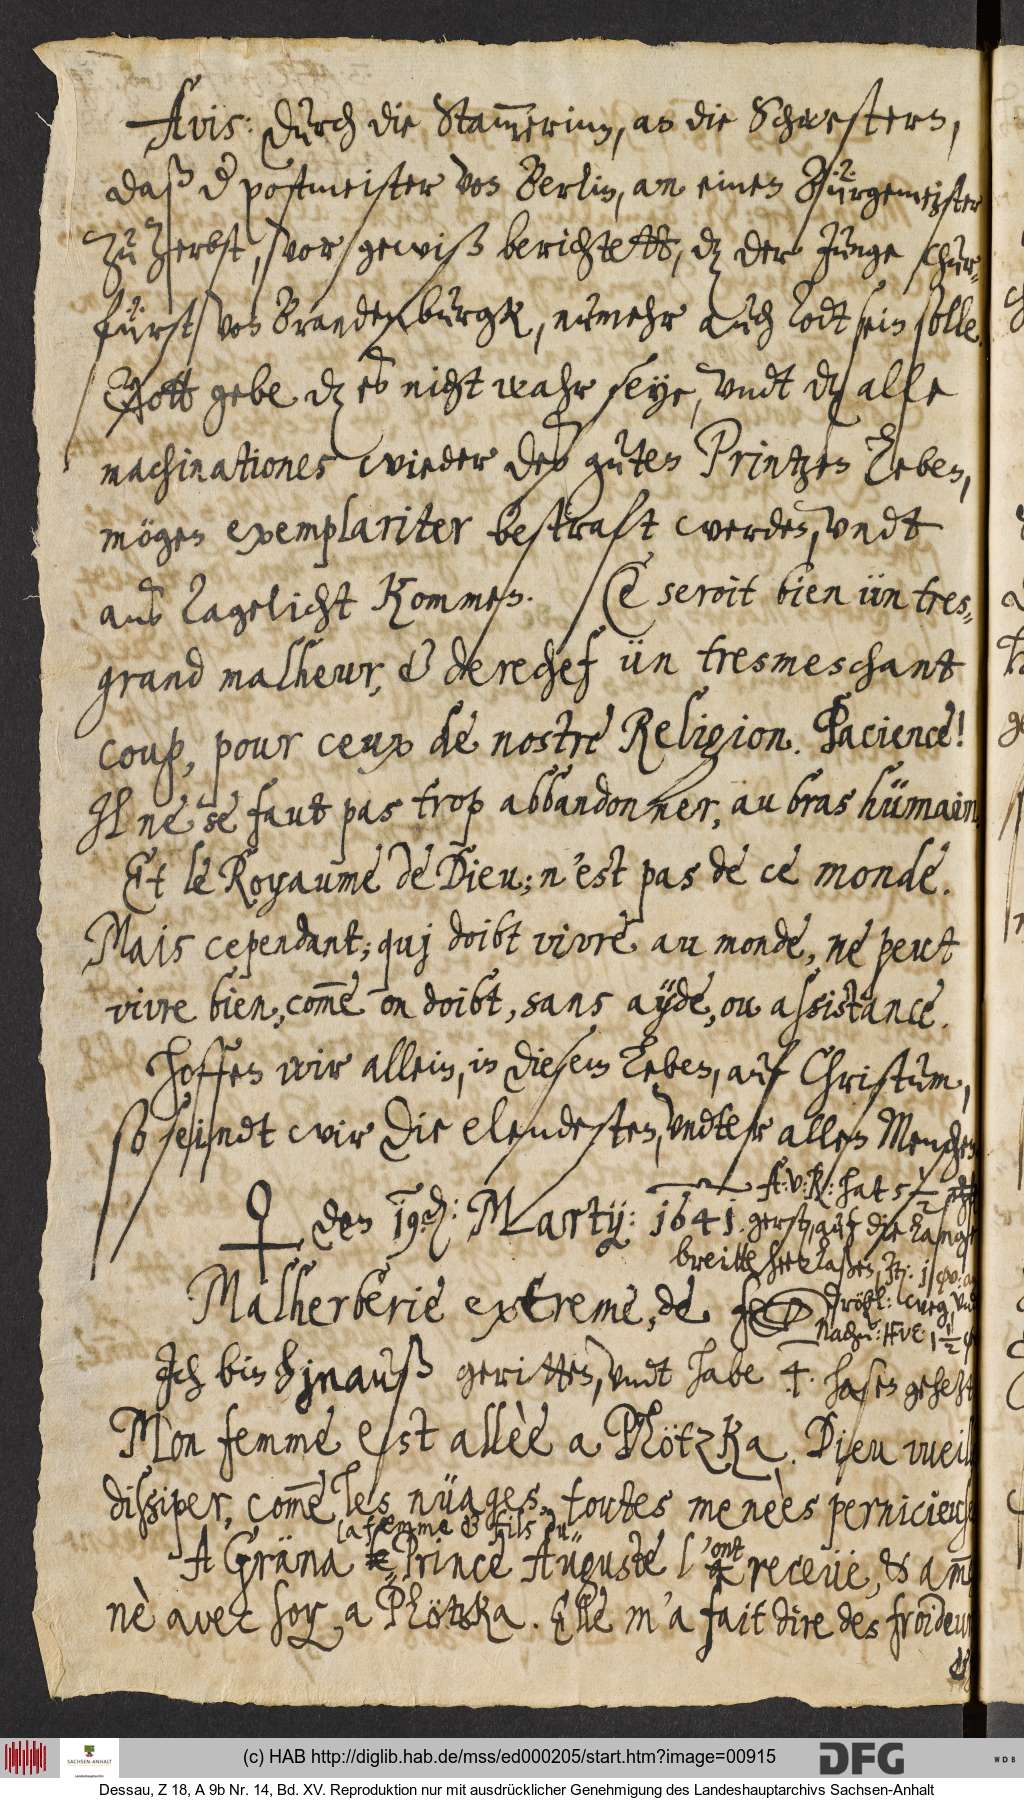 Avis: durch die Stam̅erinn, an die Schwestern,
daß der postmeister von Berlin, an einen Bürgemeister
zu Zerbst, vor gewiß berichtett, dz der Junge Chur-
fürst von Brandenburgk, numehr auch todt sein solle.
Gott gebe dz es nicht wahr seye, vndt dz alle
machinationes wieder des guten Printzen Leben,
mögen exemplariter bestraft werden, vndt
ans tagelicht kommen. Ce seroit bien ün tres-
grand malheur, & derechef ün tresmeschant
coup, pour ceux de nostre Religion. Pacience!
Il ne se faut pas trop abbandonner, au bras hümain.
Et le Royaume de Dieu; n'est pas de ce monde.
Mais cependant; quj doibt vivre au monde, ne peut
vivre bien, com̅e on doibt, sans ayde, ou assistance.
Hoffen wir allein, in diesem Leben, auf Christum,
so seindt wir die elendesten, vndter allen Menschen
♀ den 19den: Martij: 1641.
A: v: K: hat 5½
gerst, auf die lange
breitte
weg, vnd
1½
Malherberie extreme, de
Jch bin hinauß geritten, vndt habe 4. hasen gehetzt
Mon femme est allèe a Plötzka. Dieu vueil
dissiper, com̅e les nüages, toutes menèes pernicieuse
la femme & fils du
A Gräna le Prince Auguste l'ont receuë, & am̅e
nè avec soy, a Plötzka. Elle m'a fait dire des froideur
&
(c) HAB http://diglib.hab.de/mss/ed000205/start.htm?image=00915
SACHSEN-ANHALT
DFG
W D B
Dessau, Z 18, A 9b Nr. 14, Bd. XV. Reproduktion nur mit ausdrücklicher Genehmigung des Landeshauptarchivs Sachsen-Anhalt